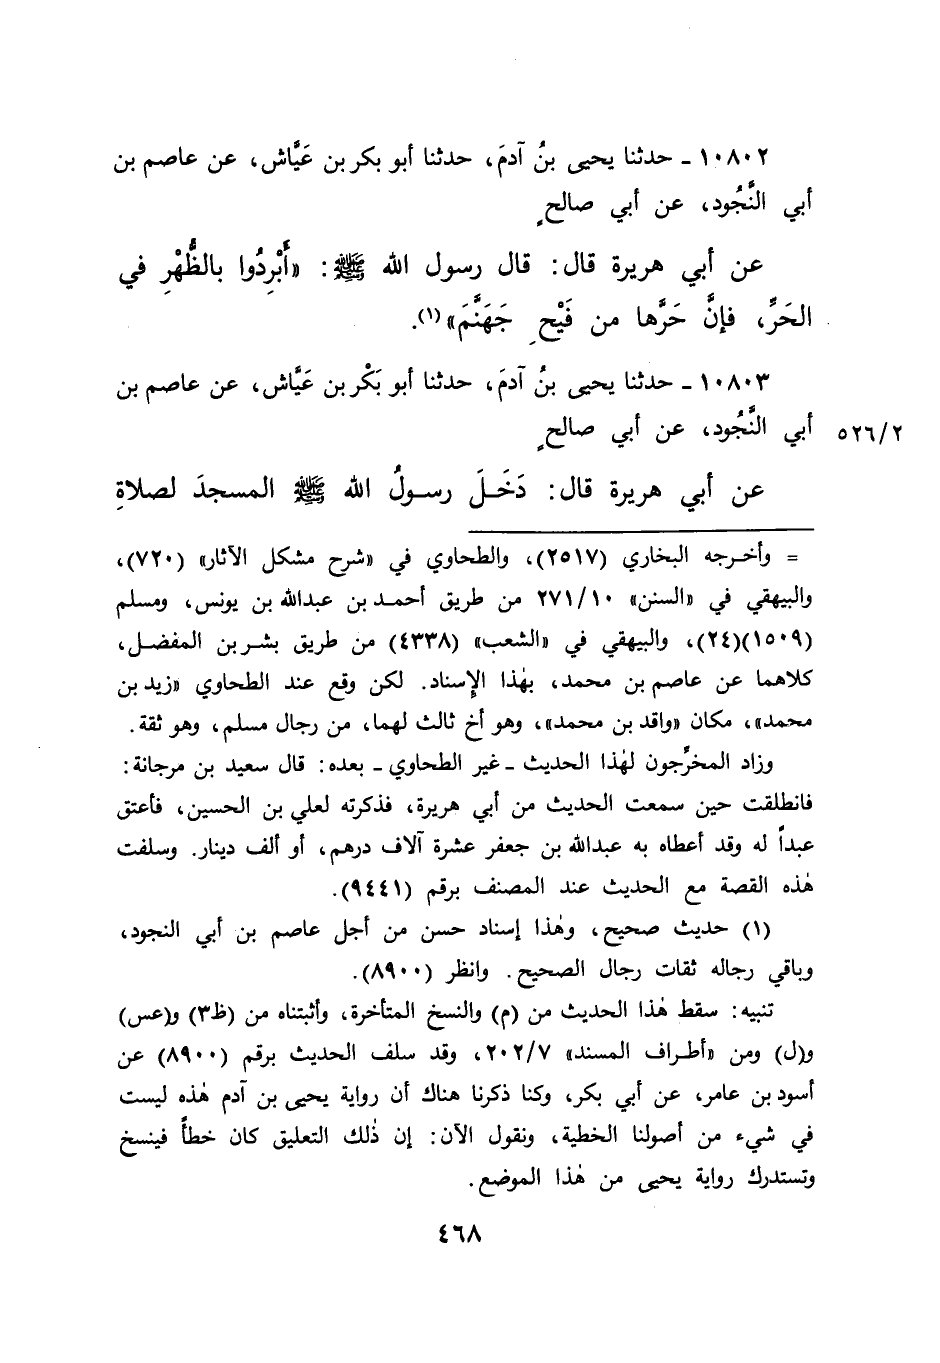 ١٠٨٠٢ ـ حدثنا يحيى بنُ آدمَ، حدثنا أبو بكر بن عَيَّاش، عن عاصم بن
أبي النَّجُود، عن أبي صالحٍ
عن أبي هريرة قال: قال رسول الله ﷺ: «أَبْرِدُوا بالظُّهْرِ في
الحَرِّ، فإنَّ حَرَّها من فَيْحِ جَهَنَّمَ»(١).
١٠٨٠٣ ـ حدثنا يحيى بنُ آدمَ، حدثنا أبو بَكْر بن عَيَّاش، عن عاصم بن
أبي النَّجُود، عن أبي صالحٍ ٥٢٦/٢
عن أبي هريرة قال: دَخَلَ رسولُ الله ﷺ المسجدَ لصلاةِ
= وأخرجه البخاري (٢٥١٧)، والطحاوي في «شرح مشكل الآثار» (٧٢٠)،
والبيهقي في «السنن» ٢٧١/١٠ من طريق أحمد بن عبدالله بن يونس، ومسلم
(١٥٠٩)(٢٤)، والبيهقي في «الشعب» (٤٣٣٨) من طريق بشر بن المفضل،
كلاهما عن عاصم بن محمد، بهٰذا الإسناد. لكن وقع عند الطحاوي «زيد بن
محمد»، مكان «واقد بن محمد»، وهو أخ ثالث لهما، من رجال مسلم، وهو ثقة.
وزاد المخرِّجون لهٰذا الحديث ـ غير الطحاوي ـ بعده: قال سعيد بن مرجانة:
فانطلقت حين سمعت الحديث من أبي هريرة، فذكرته لعلي بن الحسين، فأعتق
عبداً له وقد أعطاه به عبدالله بن جعفر عشرة آلاف درهم، أو ألف دينار. وسلفت
هٰذه القصة مع الحديث عند المصنف برقم (٩٤٤١).
(١) حديث صحيح، وهٰذا إسناد حسن من أجل عاصم بن أبي النجود،
وباقي رجاله ثقات رجال الصحيح. وانظر (٨٩٠٠).
تنبيه: سقط هٰذا الحديث من (م) والنسخ المتأخرة، وأثبتناه من (ظ٣) و(عس)
و(ل) ومن «أطراف المسند» ٢٠٢/٧، وقد سلف الحديث برقم (٨٩٠٠) عن
أسود بن عامر، عن أبي بكر، وكنا ذكرنا هناك أن رواية يحيى بن آدم هٰذه ليست
في شيء من أصولنا الخطية، ونقول الآن: إن ذٰلك التعليق كان خطأً فينسخ
وتستدرك رواية يحيى من هٰذا الموضع.
٤٦٨